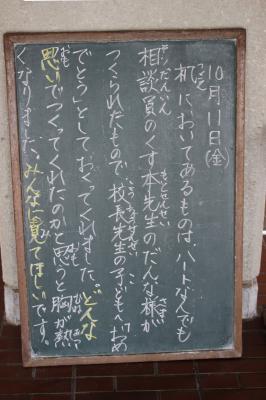 10月11日(金)
机においてあるものは、ハートなんでも
相談員のくす本先生のだんな様が
つくられたもので、校長先生の子どもへ「おめ
でとう」としておくってくれました。どんな
思いでつくってくれたのかと思うと胸が熱
くなりました。みんなに見てほしいです。